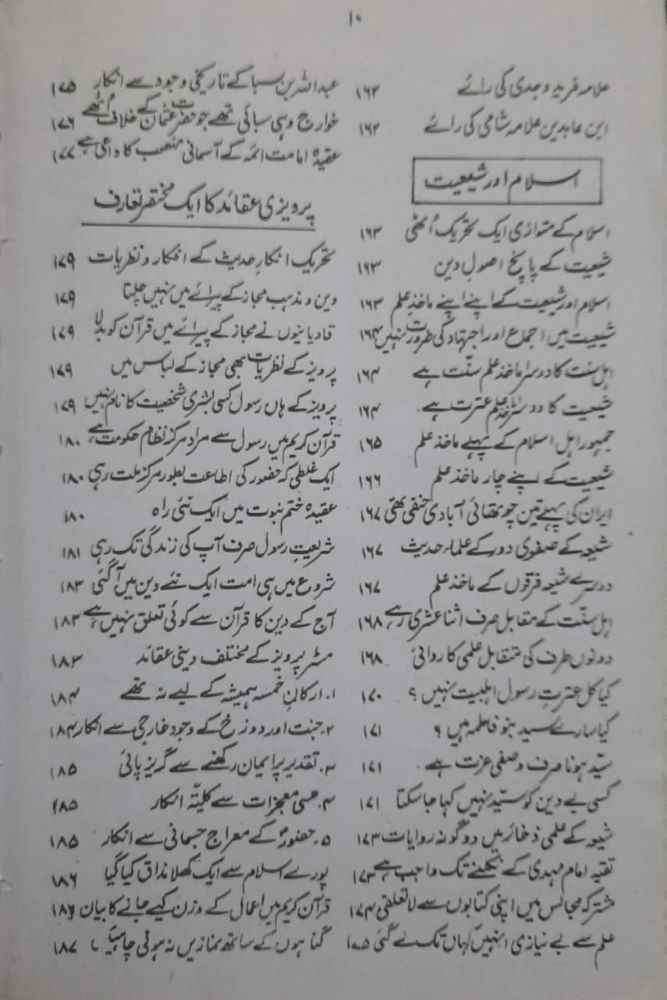 ۱۰
علامہ فرید وجدی کی رائے ۱۶۲
ابن عابدین علامہ شامی کی رائے ۱۶۲
اسلام اور شیعیت
اسلام کے متوازی ایک تحریک اُٹھی ۱۶۳
شیعیت کے پانچ اصول دین ۱۶۳
اسلام اور شیعیت کے اپنے اپنے ماخذِ علم ۱۶۳
شیعیت میں اجماع اور اجتہاد کی ضرورت نہیں ۱۶۴
اہل سنت کا دوسرا ماخذ علم سنّت ہے ۱۶۴
شیعیت کا دوسرا ماخذ علم عترت ہے ۱۶۴
جمہور اہل اسلام کے پہلے ماخذ علم ۱۶۵
شیعیت کے اپنے چار ماخذ علم ۱۶۶
ایران کی پہلے تین چوتھائی آبادی حنفی تھی ۱۶۷
شیعہ کے صفوی دور کے علماء حدیث ۱۶۷
دوسرے شیعہ فرقوں کے ماخذ علم ۱۶۷
اہل سنّت کے مقابل صرف اثنا عشری رہے ۱۶۸
دونوں طرف کی متقابل علمی کاروائی ۱۶۸
کیا کل عترتِ رسول اہلبیت نہیں؟ ۱۷۰
کیا سارے سید بنو فاطمہ ہیں؟ ۱۷۱
سیّد ہونا صرف وصفی عزت ہے ۱۷۱
کسی بے دین کو سیّد نہیں کہا جا سکتا ۱۷۱
شیعہ کے علمی ذخائر میں دوگونہ روایات ۱۷۳
تقیہ امام مہدی کے نکلنے تک واجب ہے ۱۷۳
مشترکہ مجالس میں اپنی کتابوں سے لاتعلقی ۱۷۴
علم سے بے نیازی انہیں کہاں تک لے گئی ۱۷۵
عبداللہ بن سبا کے تاریخی وجود سے انکار ۱۷۵
خوارج وہی سبائی تھے جو حضرت عثمانؓ کے خلاف اُٹھے ۱۷۶
عقیدۂ امامت ائمہ کے آسمانی منصب کا داعی ہے ۱۷۷
پرویزی عقائد کا ایک مختصر تعارف
تحریک انکارِ حدیث کے افکار و نظریات ۱۷۹
دین و مذہب مجاز کے پیرائے میں نہیں چلتا ۱۷۹
قادیانیوں نے مجاز کے پیرائے میں قرآن کو بدلا ۱۷۹
پرویز کے نظریات بھی مجاز کے لباس میں ۱۷۹
پرویز کے ہاں رسول کسی بشری شخصیت کا نام نہیں ۱۷۹
قرآن کریم میں رسول سے مراد مرکز نظام حکومت ہے ۱۸۰
ایک غلطی کہ حضور کی اطاعت بطور مرکز ملت رہی ۱۸۰
عقیدۂ ختم نبوت میں ایک نئی راہ ۱۸۰
شریعتِ رسول صرف آپ کی زندگی تک رہی ۱۸۱
شروع میں ہی امت ایک نئے دین میں آگئی ۱۸۳
آج کے دین کا قرآن سے کوئی تعلق نہیں ہے ۱۸۳
مسٹر پرویز کے مختلف دینی عقائد ۱۸۳
۱. ارکانِ خمسہ ہمیشہ کے لیے نہ تھے ۱۸۴
۲. جنت اور دوزخ کے وجود خارجی سے انکار ۱۸۴
۳. تقدیر پر ایمان رکھنے سے گریز پائی ۱۸۵
۴. حسی معجزات سے کلیتہً انکار ۱۸۵
۵. حضورؐ کے معراج جسمانی سے انکار ۱۸۵
پورے اسلام سے ایک کھلا مذاق کیا گیا ۱۸۶
قرآن کریم میں اعمال کے وزن کیے جانے کا بیان ۱۸۶
گناہوں کے ساتھ نمازیں نہ ہونی چاہئیں ۱۸۷